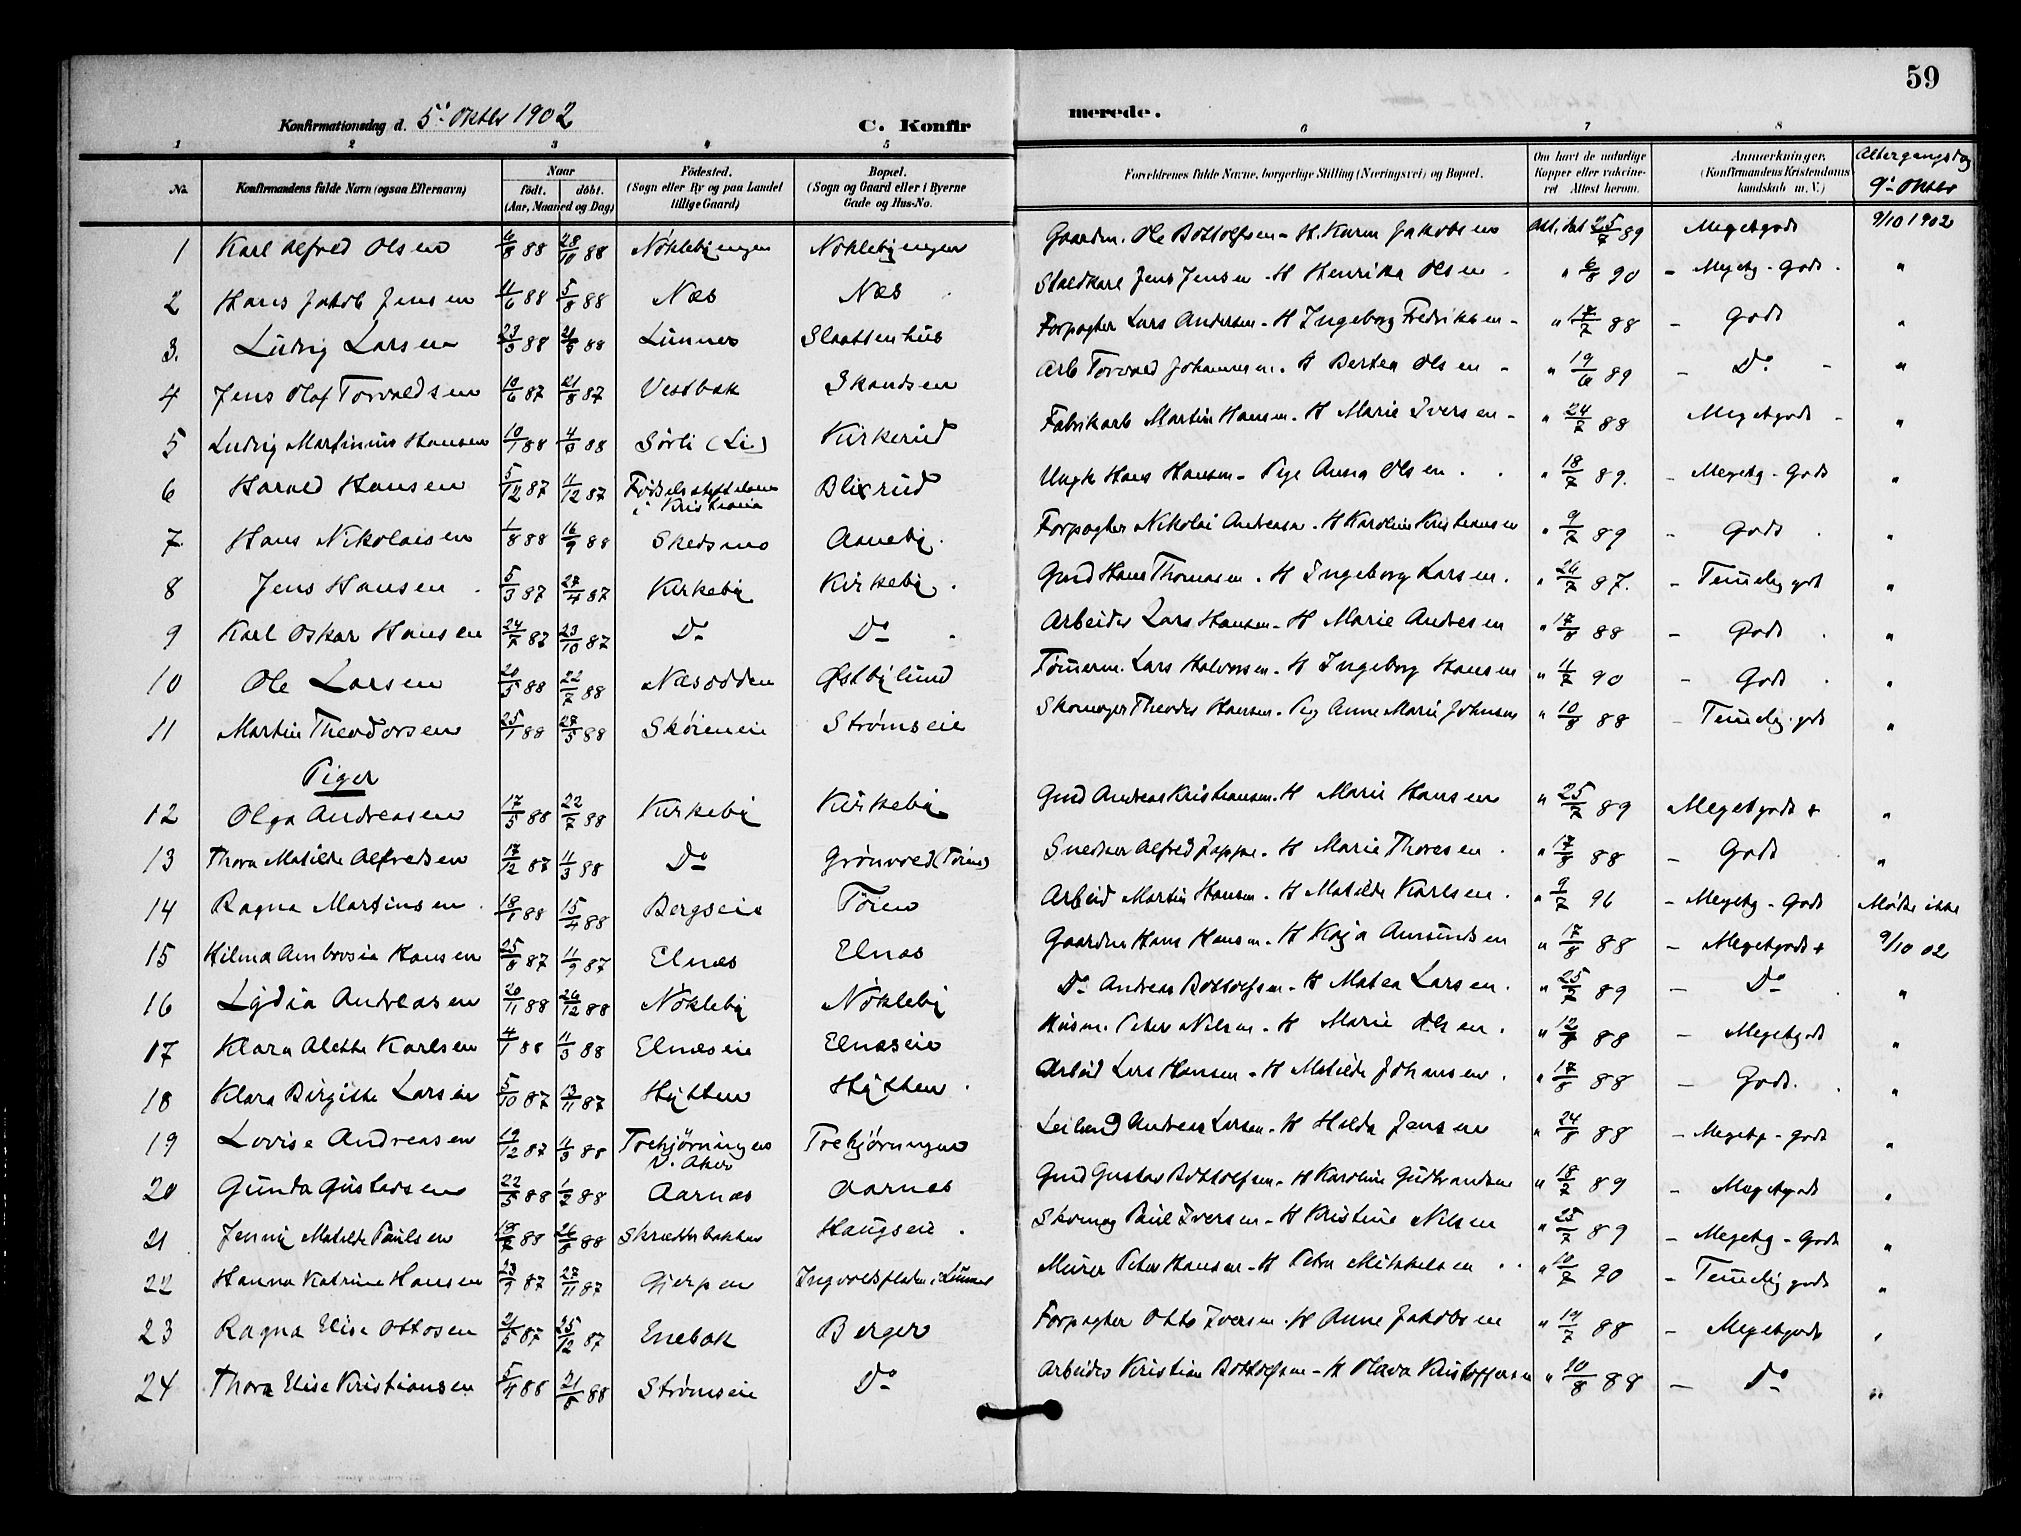 59
Konfirmationsdag d. 5' Oktbr 1902 C. Konfir merede.
1 2 3 4 5 6 7 8
No. Konfirmandens fulde Navn (ogsaa Efternavn) Naar født. døbt. (Aar, Maaned og Dag) Fødested. (Sogn eller By og paa Landet tillige Gaard) Bopæl. (Sogn og Gaard eller i Byerne Gade og Hus-No. Forældrenes fulde Navne, borgerlige Stilling (Næringsvei) og Bopæl. Om havt de naturlige Kopper eller vakcineret Attest herom. Anmærkninger. (Konfirmandens Kristendomskundskab m. V.) Altergangsdag 9' Oktbr
1 Karl Alfred Olsen 88 28/10 88 Nöklebyengen Nöklebyengen Gaardm. Ole Bottolfsen - H. Karen Jakobsen Att. dat 25/7 89 Megetgodt 9/10 1902
2 Hans Jakob Jensen 88 5/8 88 Næs Næs Staldkarl Jens Jensen - H Henrika Olsen " 6/8 90 - Megetg - Godt "
3. Ludvig Larsen 88 88 Lunnes Slaattenhus Forpagter Lars Andersen - H Ingeborg Fredriksen - " 17/7 88 - Godt "
4 Jens Olaf Torvaldsen 10/6 87 21/8 87 Vestbak Skandsen Arb Torvald Johannesen - H Bertea Olsen - " 19/6 89 - Do - "
5 Ludvig Martinius Hansen 10/1 88 88 Sörli (Li) Kirkerud Fabrikarb Martin Hansen - H Marie Iversen - " 24/7 88 Megetgodt - "
6 Harald Hansen 5/12 87 11/12 87 Födselsstiftelsen i Kristiania Blixrud Ungk Hans Hansen - Pige Anna Olsen " 18/7 89. - Megetg - Godt "
7 Hans Nikolaisen 1/8 88 16/9 88 Skedsmo Aaneby. Forpagter Nikolai Andreasen - H Karoline Kristiansen " 9/7 89 - Godt "
8 Jens Hansen 5/3 87 27/4 87 Kirkeby Kirkeby. Gmd Hans Thomasen - H Ingeborg Larsen. " 26/7 87. - Temelig godt "
9 Karl Oskar Hansen 24/7 87 23/10 87 Do Do Arbeider Lars Hansen - H Marie Andresen " 17/8 88 - Godt "
10 Ole Larsen 20/5 88 22/7 88 Næsodden Østbylund Tömerm. Lars Halvorsen - H Ingeborg Hansen " 11/7 90 - Godt "
11 Martin Theodorsen 25/1 88 27/5 88 Sköieneie Strömseie Skomager Theodor Hansen - Pig Anne Marie Johnsen " 10/8 88 - Temelig godt "
Piger
12 Olga Andreasen 17/5 88 22/7 88 Kirkeby Kirkeby Gmd Andreas Kristiansen - H Marie Hansen " 25/7 89 Megetgodt + "
13 Thora Matilde Alfredsen 17/12 87 11/3 88 Do Grönvold (Toien) Snedker Alfred Pappe - H Marie Thoresen " 17/8 88 - Godt "
14 Ragna Martinsen 18/1 88 15/4 88 Bergseie Töien Arbeid Martin Hansen - H Matilde Karlsen. " 9/7 96 - Megetg - Godt Mødte ikke
15 Hilma Ambrosia Hansen 25/8 87 11/9 87 Elnæs Elnæs Gaardm Hans Hansen - H Kaja Amundsen " 17/8 88 - Megetgodt + 9/10 02
16 Lydia Andreasen 20/11 88 26/12 88 Nökleby Nökleby Do Andreas Bottolfsen - H Matea Larsen. " 25/7 89 - Do "
17 Klara Alette Karlsen 4/1 88 11/3 88 Elnæseie Elnæseie Husm. Peter Nilsen - H Marie Olsen. " 88 - Megetgodt "
18 Klara Birgitte Larsen 5/10 87 13/11 87 Hytten Hytten. Arbeid Lars Hansen - H Matilde Johansen. " 17/8 88 - Godt. "
19 Lovise Andreasen 19/12 87 11/3 88 Trekjörningen V. Aker Trekjörningen Leilend Andreas Larsen - H Hilda Jensen " 24/8 88 - Megetg - godt "
20 Gunda Gustavsen 88 88 Aarnæs Aarnes Gmd Gustav Bottolfsen - H Karoline Gudbrandsen " 18/7 89 - Megetgodt "
21 Jenny Matilde Paulsen 88 26/8 88 Skrædderbakken Haugseie. Skomag Paul Iversen - H Kristine Nilsen " 25/7 89 - Megetg - Godt "
22 Hanna Katrine Hansen 23/9 87 27/11 87 Gjerpen Ingvoldsplads i Lunnes Murer Peter Hansen - H Petra Mikkelsen " 90 - Temelig godt "
23 Ragna Elise Ottosen 21/5 87 25/12 87 Enebak Berger Forpagter Otto Iversen - H Anne Jakobsen " 19/7 88 - Megetgodt "
24 Thora Elise Kristiansen 5/4 88 21/8 88 Strömseie Do Arbeider Kristian Bottolfsen - H Olava Kristoffersen " 10/8 88 - Do "